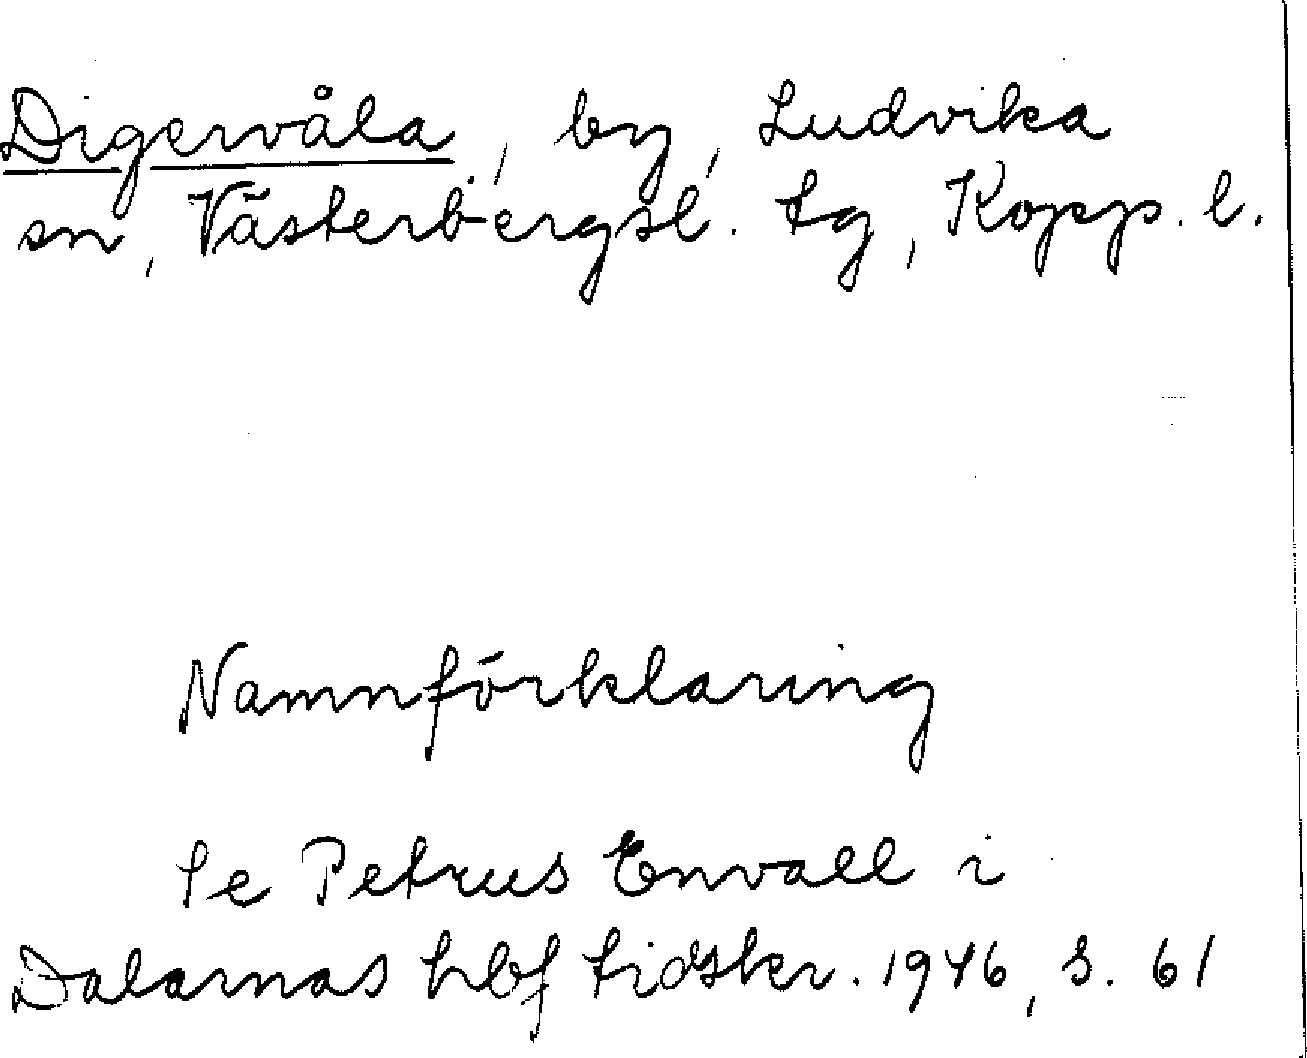 Digervåla, by, Ludvika
sn, Västerbergsl. tg, Kopp. l.
Namnförklaring
Se Petrus Envall i
Dalarnas hbf tidskr. 1946, s. 61